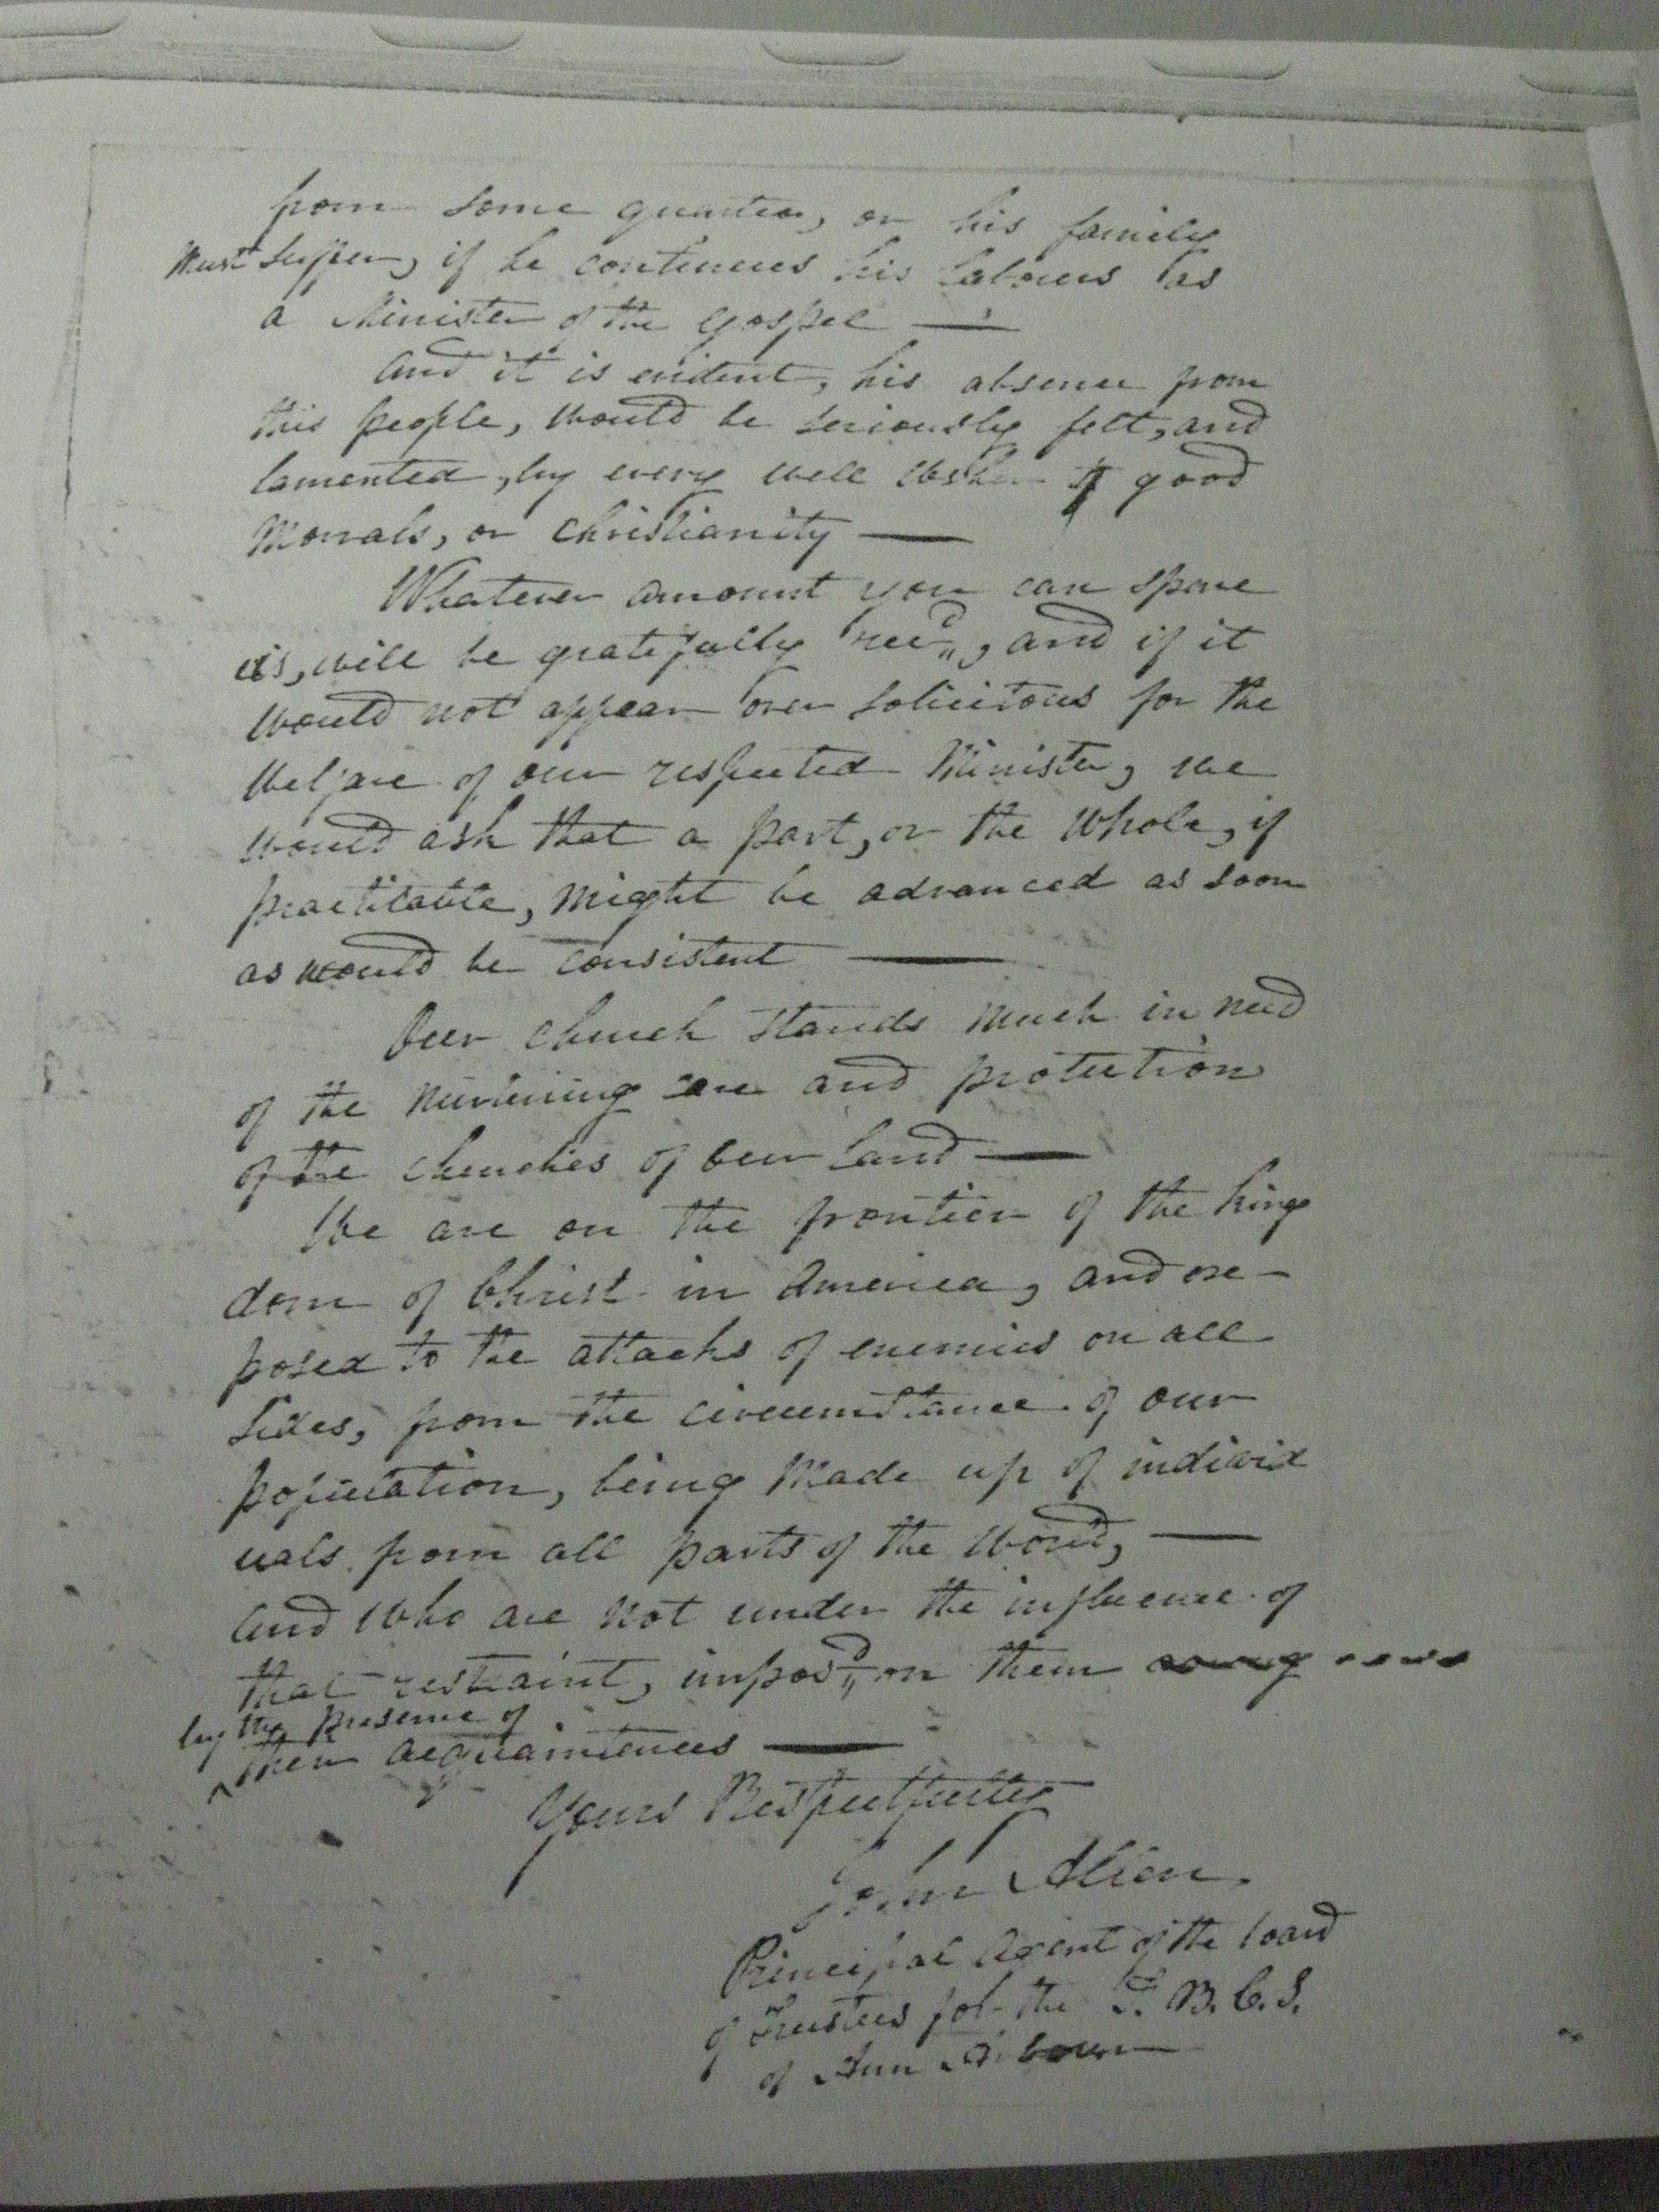 from some quarter, or his family
must suffer, if he continues his labours as
a Minister of the Gospel —
And it is evident, his absence from
this people, would be seriously felt, and
lamented, by every well wisher of good
Morrals, or Christianity —
Whatever amount you can spare
us, will be gratefully recd,, and if it
would not appear over solicitous for the
welfare of our respected Minister, we
would ask that a part, or the whole, if
practicable, might be advanced as soon
as would be consistent —
Our Church stands much in need
of the nurturing care and protection
of the churches of our land —
We are on the frontier of the king
dom of Christ in America, and ex-
posed to the attacks of enemies on all
sides, from the circumstance of our
population, being made up of individ
uals from all parts of the world, —
and who are not under the influence of
that restraint, imposd,, on them
by the presence of
their acquaintences —
Yours Respectfully
John Allen.
Principal Agent of the board
of Trustees for the F. B. C. S.
of Ann Arbour